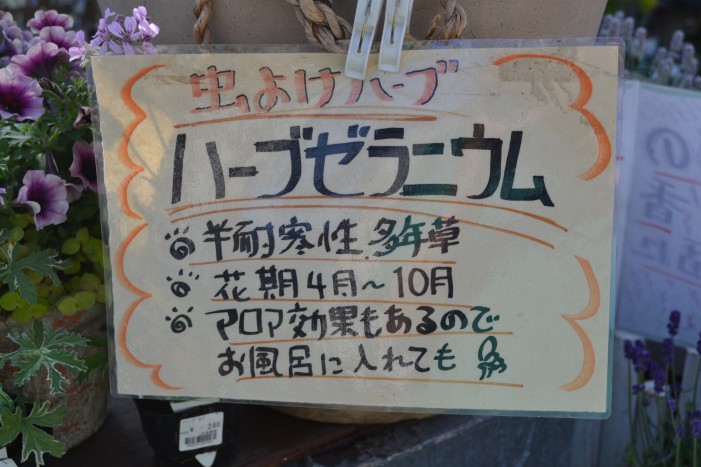 虫よけハーブ
ハーブゼラニウム
半耐寒性 多年草
花期 4月〜10月
アロマ効果もあるので
お風呂に入れても
の
活
に